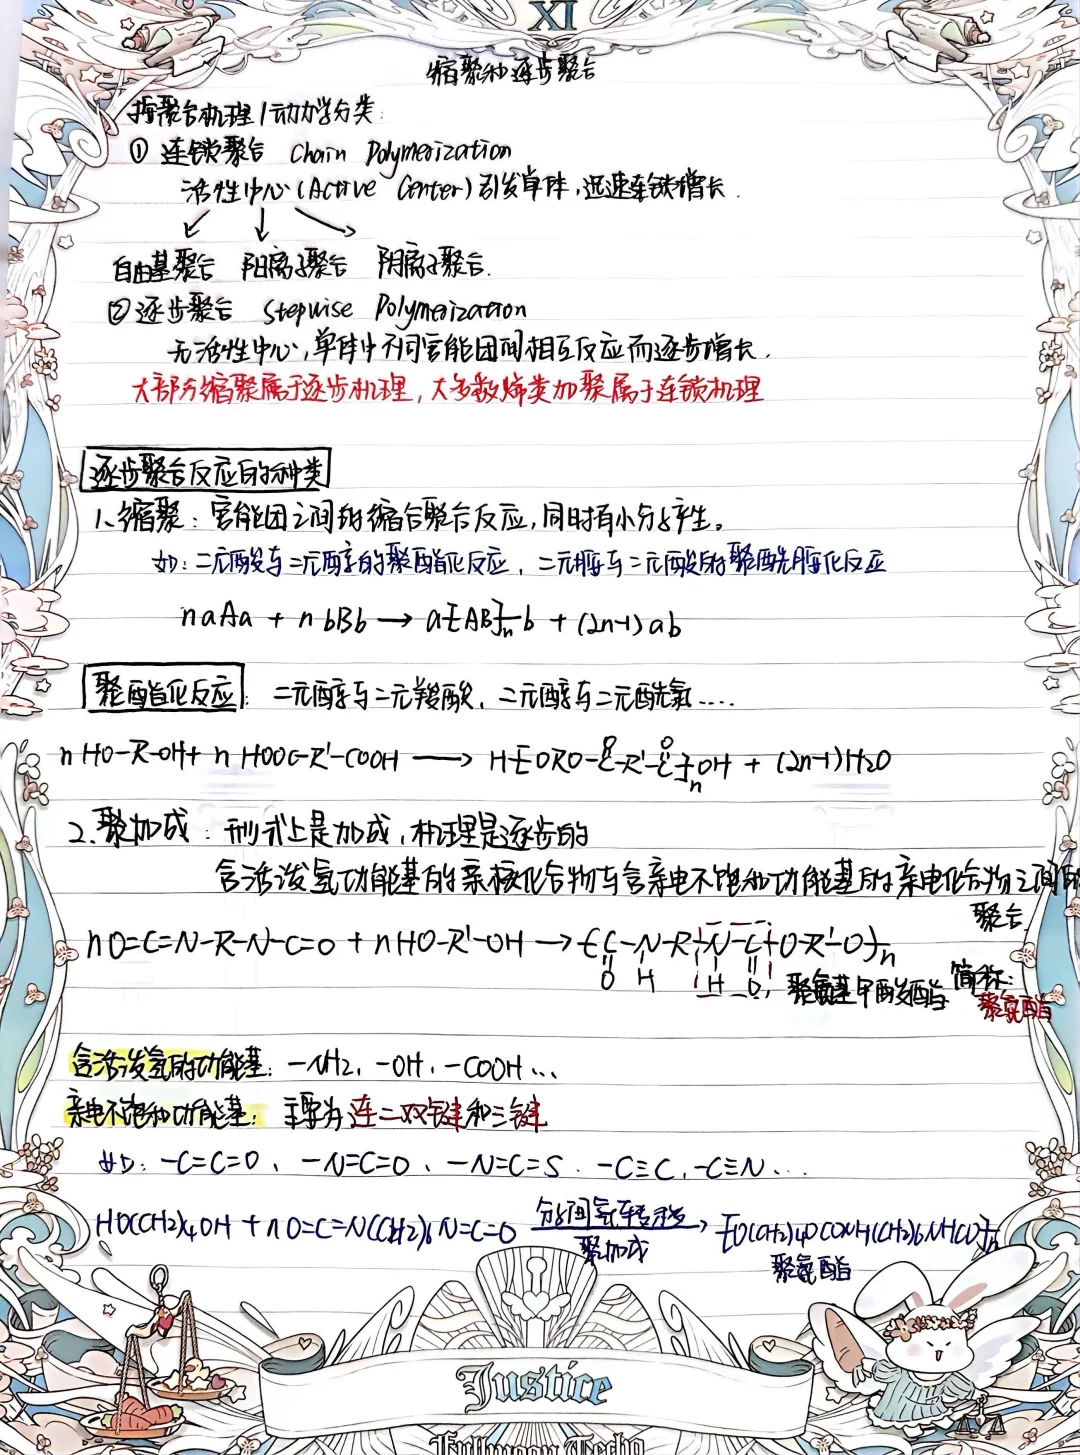 XI
缩聚和逐步聚合
按聚合机理/动力学分类:
① 连锁聚合 Chain Polymerization
活性中心(Active Center)引发单体,迅速连锁增长.
↙ ↓ ↘
自由基聚合 阳离子聚合 阴离子聚合.
② 逐步聚合 Stepwise Polymerization
无活性中心,单体中不同官能团间相互反应而逐步增长.
大部分缩聚属于逐步机理,大多数烯类加聚属于连锁机理
逐步聚合反应的种类
1、缩聚:官能团之间的缩合聚合反应,同时有小分子产生。
如:二元酸与二元醇的聚酯化反应,二元胺与二元酸的聚酰胺化反应
naAa + nbBb → a[AB]n b + (2n-1)ab
聚酯化反应:二元醇与二元羧酸、二元醇与二元酰氯....
n HO-R-OH + n HOOC-R'-COOH → H[ORO-C-R'-C]n OH + (2n-1)H2O
O O
2、聚加成:形式上是加成,机理是逐步的
含活泼氢功能基的亲核化合物与含亲电不饱和功能基的亲电化合物之间的
聚合.
nO=C=N-R-N=C=O + nHO-R'-OH → [C-N-R-N-C-O-R'-O]n
O H H O
聚氨基甲酸酯 简称:
聚氨酯
含活泼氢的功能基:-NH2、-OH、-COOH...
亲电不饱和功能基:主要为连二双键和三键
如:-C=C=O、-N=C=O、-N=C=S、-C≡C、-C≡N...
HO(CH2)4OH + nO=C=N(CH2)6N=C=O 分子间氢转移 → [O(CH2)4OCONH(CH2)6NHCO]n
聚加成
聚氨酯
Justice